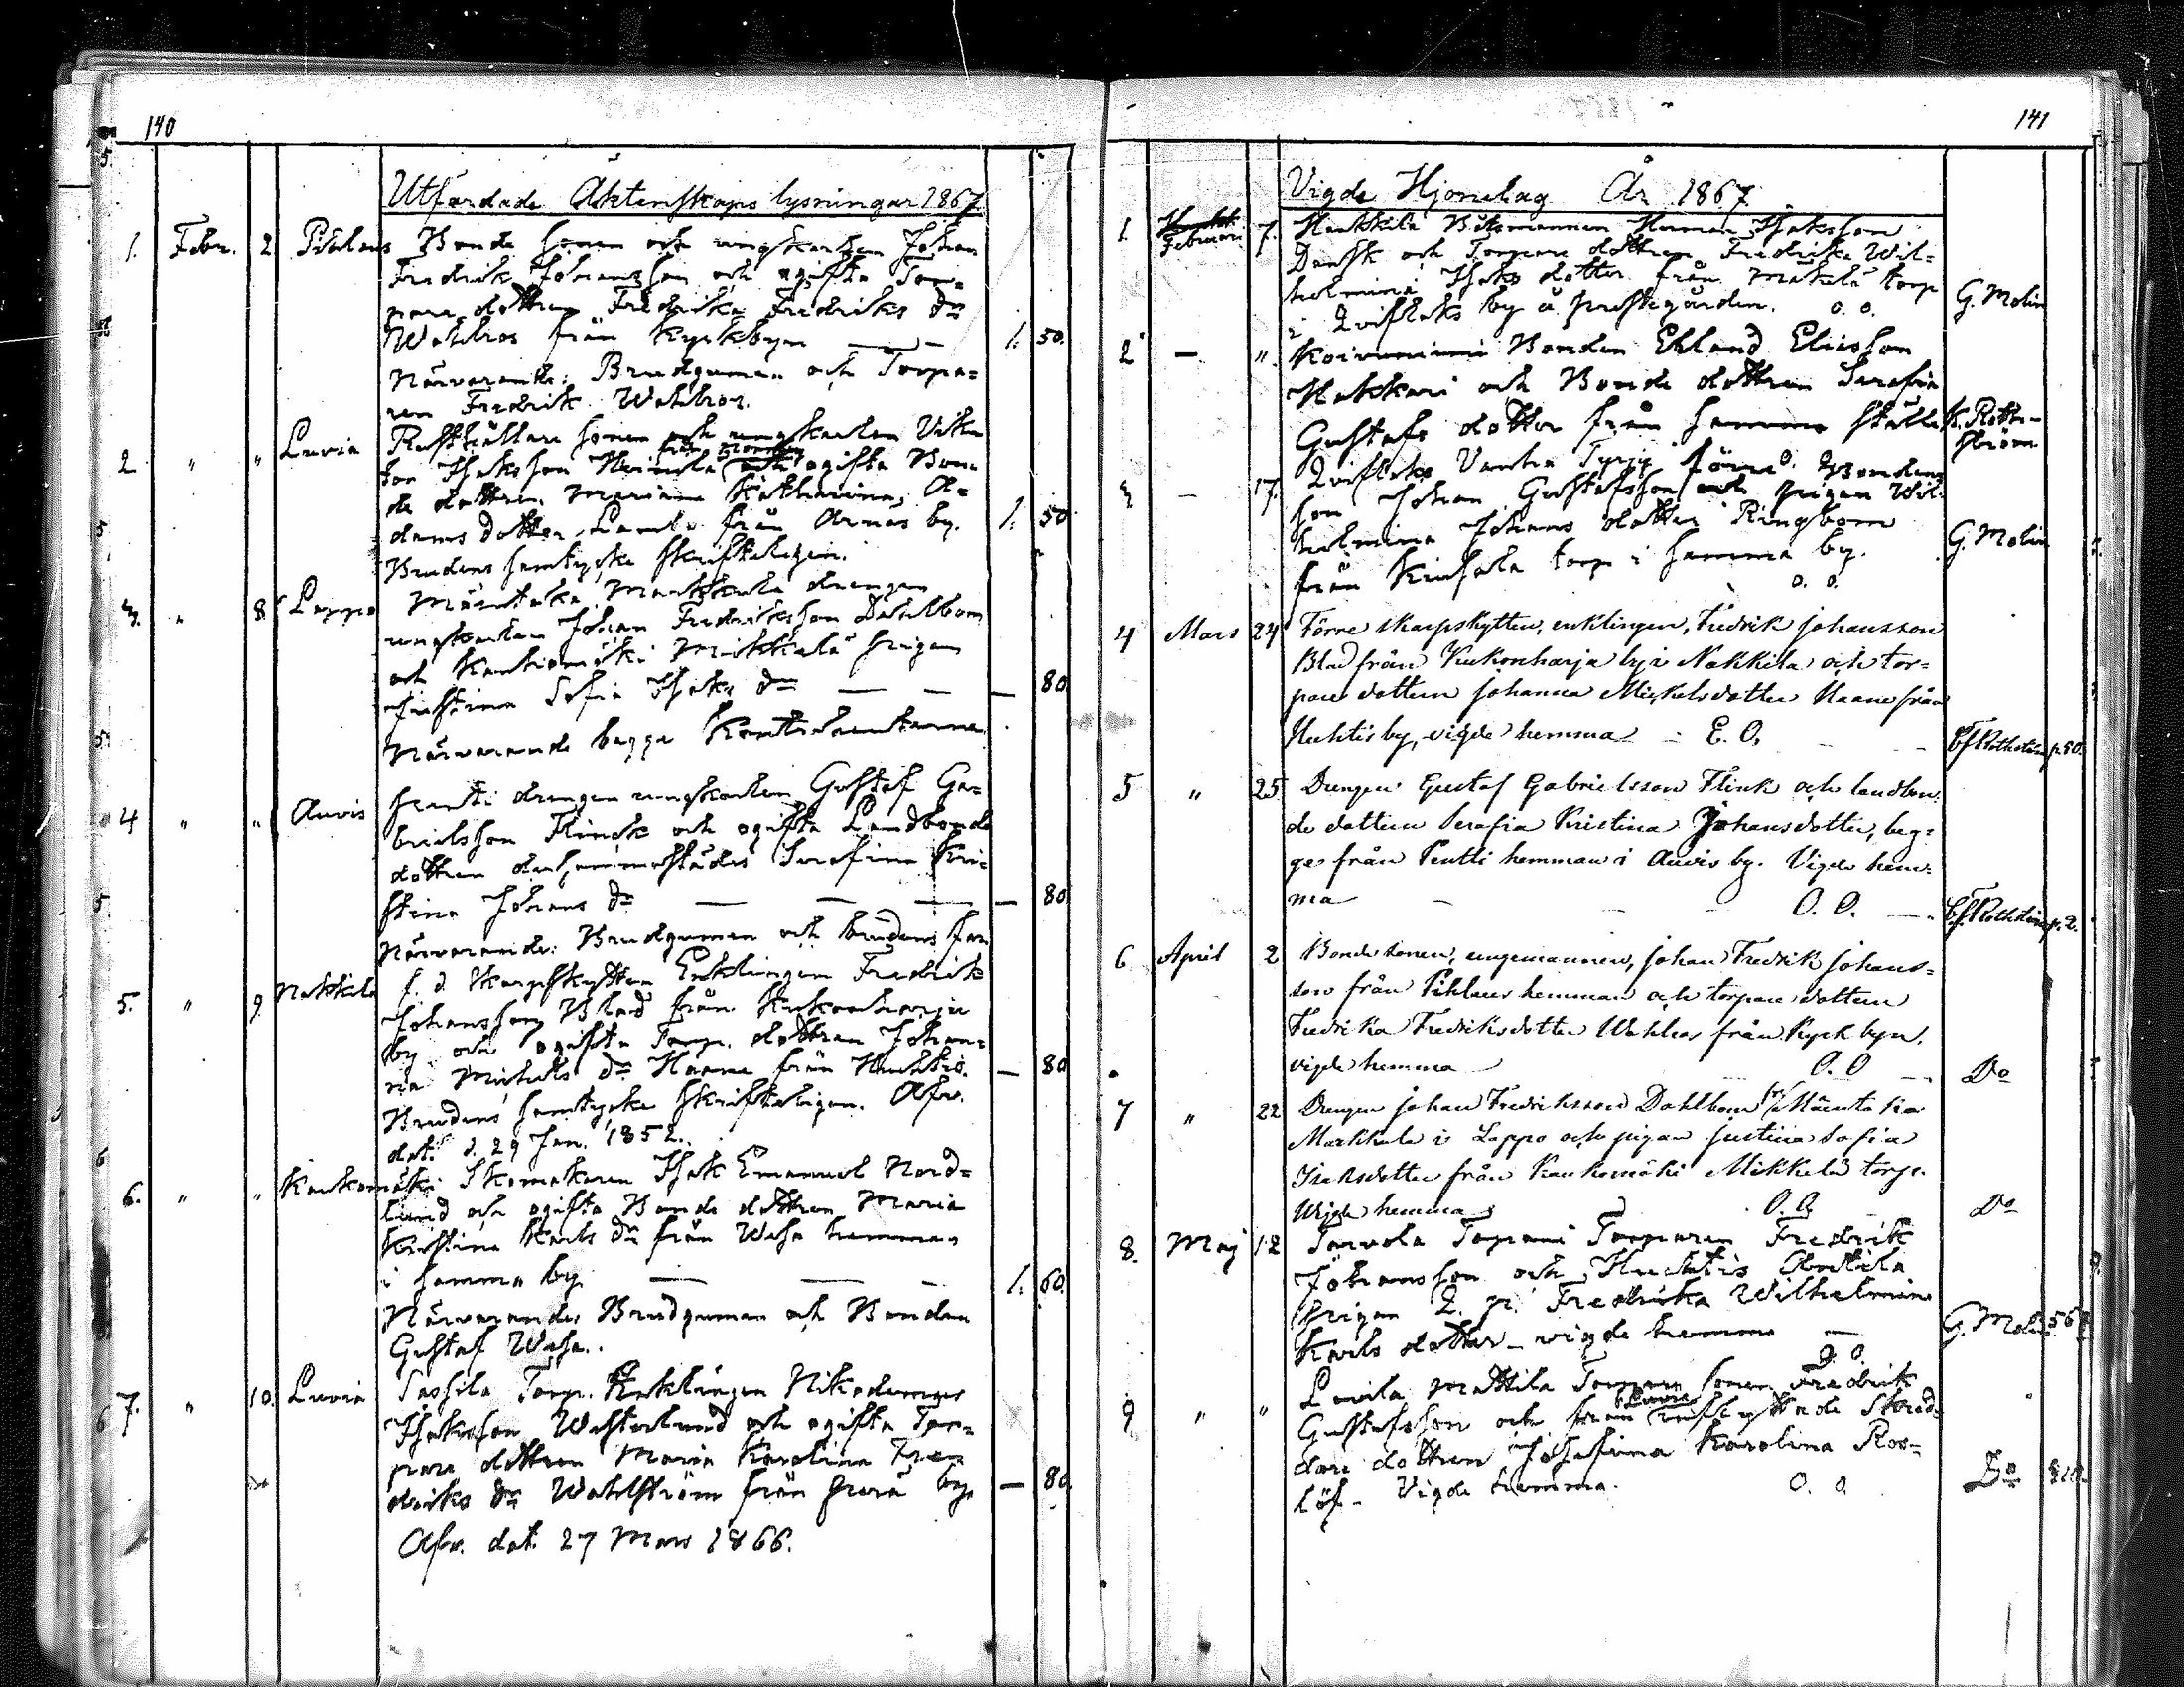 140
Utfärdade Äktenskaps lysningar 1867
1. Febr. 2 Pihlaus Bonde sonen och ungkarlen Johan
Fredrik Johansson och ogifta Tor-
pare dottren Fredrika Fredriks dr
Wahlros från Kyrkbyn — — 1. 50.
Närvarande: Brudgummen och Torpa-
ren Fredrik Wahlros.
2 " " Luvia Rusthållare sonen och ungkarlen Vik-
tor Isaksson Heinilä från ogifta Bon-
de dottren Mariana Katharina A-
dams dotter Lamb från Arnäs by. 1. 50
Brudens samtycke skrifteligen.
3. " 8 Lappo Mäntaka Markkula drengen
ungkarlen Johan Fredriksson Dahlbom
och Kaukomäki Mikkelä pigan
Justina Sofia Isaks dr — — — 80
Närvarande begge Kontrahenterne.
4 " " Anvis Pentti drengen ungkarlen Gustaf Ga-
brielsson Flinck och ogifta Landbonde
dottren dersammastädes Serafina Kri-
stina Johans dr — — — — 80
Närvarande: Brudgummen och brudens far
5. " 9 Nakkila f. d. Skarpskytten Enklingen Fredrik
Johansson Blad från Kukonharja
by och ogifta Torp. dottren Johan-
na Michels dr Haane från Huhtis. — 80
Brudens samtycke skrifteligen. Afv.
dat. d. 29 Jan. 1852.
6. " " Kaukomäki Skomakaren Isak Emanuel Nord-
lund och ogifta Bonde dottren Maria
Kristina Karls dr från Wasa hemman
i samma by. — — — 1. 60.
Närvarande Brudgumman och Bonden
Gustaf Wasa.
7. " 10. Luvia Sassila Torp. Enklingen Nikodemus
Isaksson Westerlund och ogifta Tor-
pare dottren Maria Karolina Fre-
driks dr Wahlström från by. — 80
Afv. dat. 27 Mars 1866.
141
Vigde Hjonelag År 1867
1. Februari 7. Heikkilä Båtsmannen Herman Isaksson
Dansk och Torpare dottren Fredrika Wil-
helmina Isaks dotter från Mäkelä torp
i Qviflaks by å prestgården. o. o. G. Molin
2 — " Koivuniemi Bonden Ekland Eliasson
Hakkari och Bonde dottren Serafia
Gustafs dotter från samma ställe K. Roth-
ström
3 — 17. Qviflaks Vanha Tyrjy förre Bondens
son Johan Gustafsson och pigan Wil-
helmina Johans dotter Ringbom
från torp i samma by. G. Molin
o. o.
4 Mars 24 Förre skarpskytten, enklingen, Fredrik Johansson
Blad från Kukonharja by i Nakkila och tor-
pare dottren Johanna Mickelsdotter Haane från
Huhtis by, vigde hemma — E. O. p. 80.
5 " 25 Drengen Gustaf Gabrielsson Flink och landbon-
de dottern Serafia Kristina Johansdotter, beg-
ge från Pentti hemman i Anvis by. Vigde hem-
ma — O. O. — p. 2.
6 April 2 Bonde sonen, ungemannen, Johan Fredrik Johans-
son från Pihlaus hemman och torpare dottern
Fredrika Fredriksdotter Wahlros från Kyrkbyn.
vigde hemma O. O Do
7 " 22 Drengen Johan Fredriksson Dahlbom fr. Mäntaka
Markkula i Lappo och pigan Justina Sofia
Isaksdotter från Kaukomäki Mikkelä torp.
Wigde hemma O. O. Do
8. Maj 12 Torvola Torpparen Fredrik
Johansson och Huhtis Anttila
pigan Fredrika Wilhelmina
Karls dotter – vigde hemma — G. Molin 56
o. o.
9 " " Levila Mattila Torpare sonen Fredrik
Gustafsson och från Luvia inflyttade Skräd-
dare dottren Josefina Karolina Ros-
löf – Vigde hemma. O. O. Do